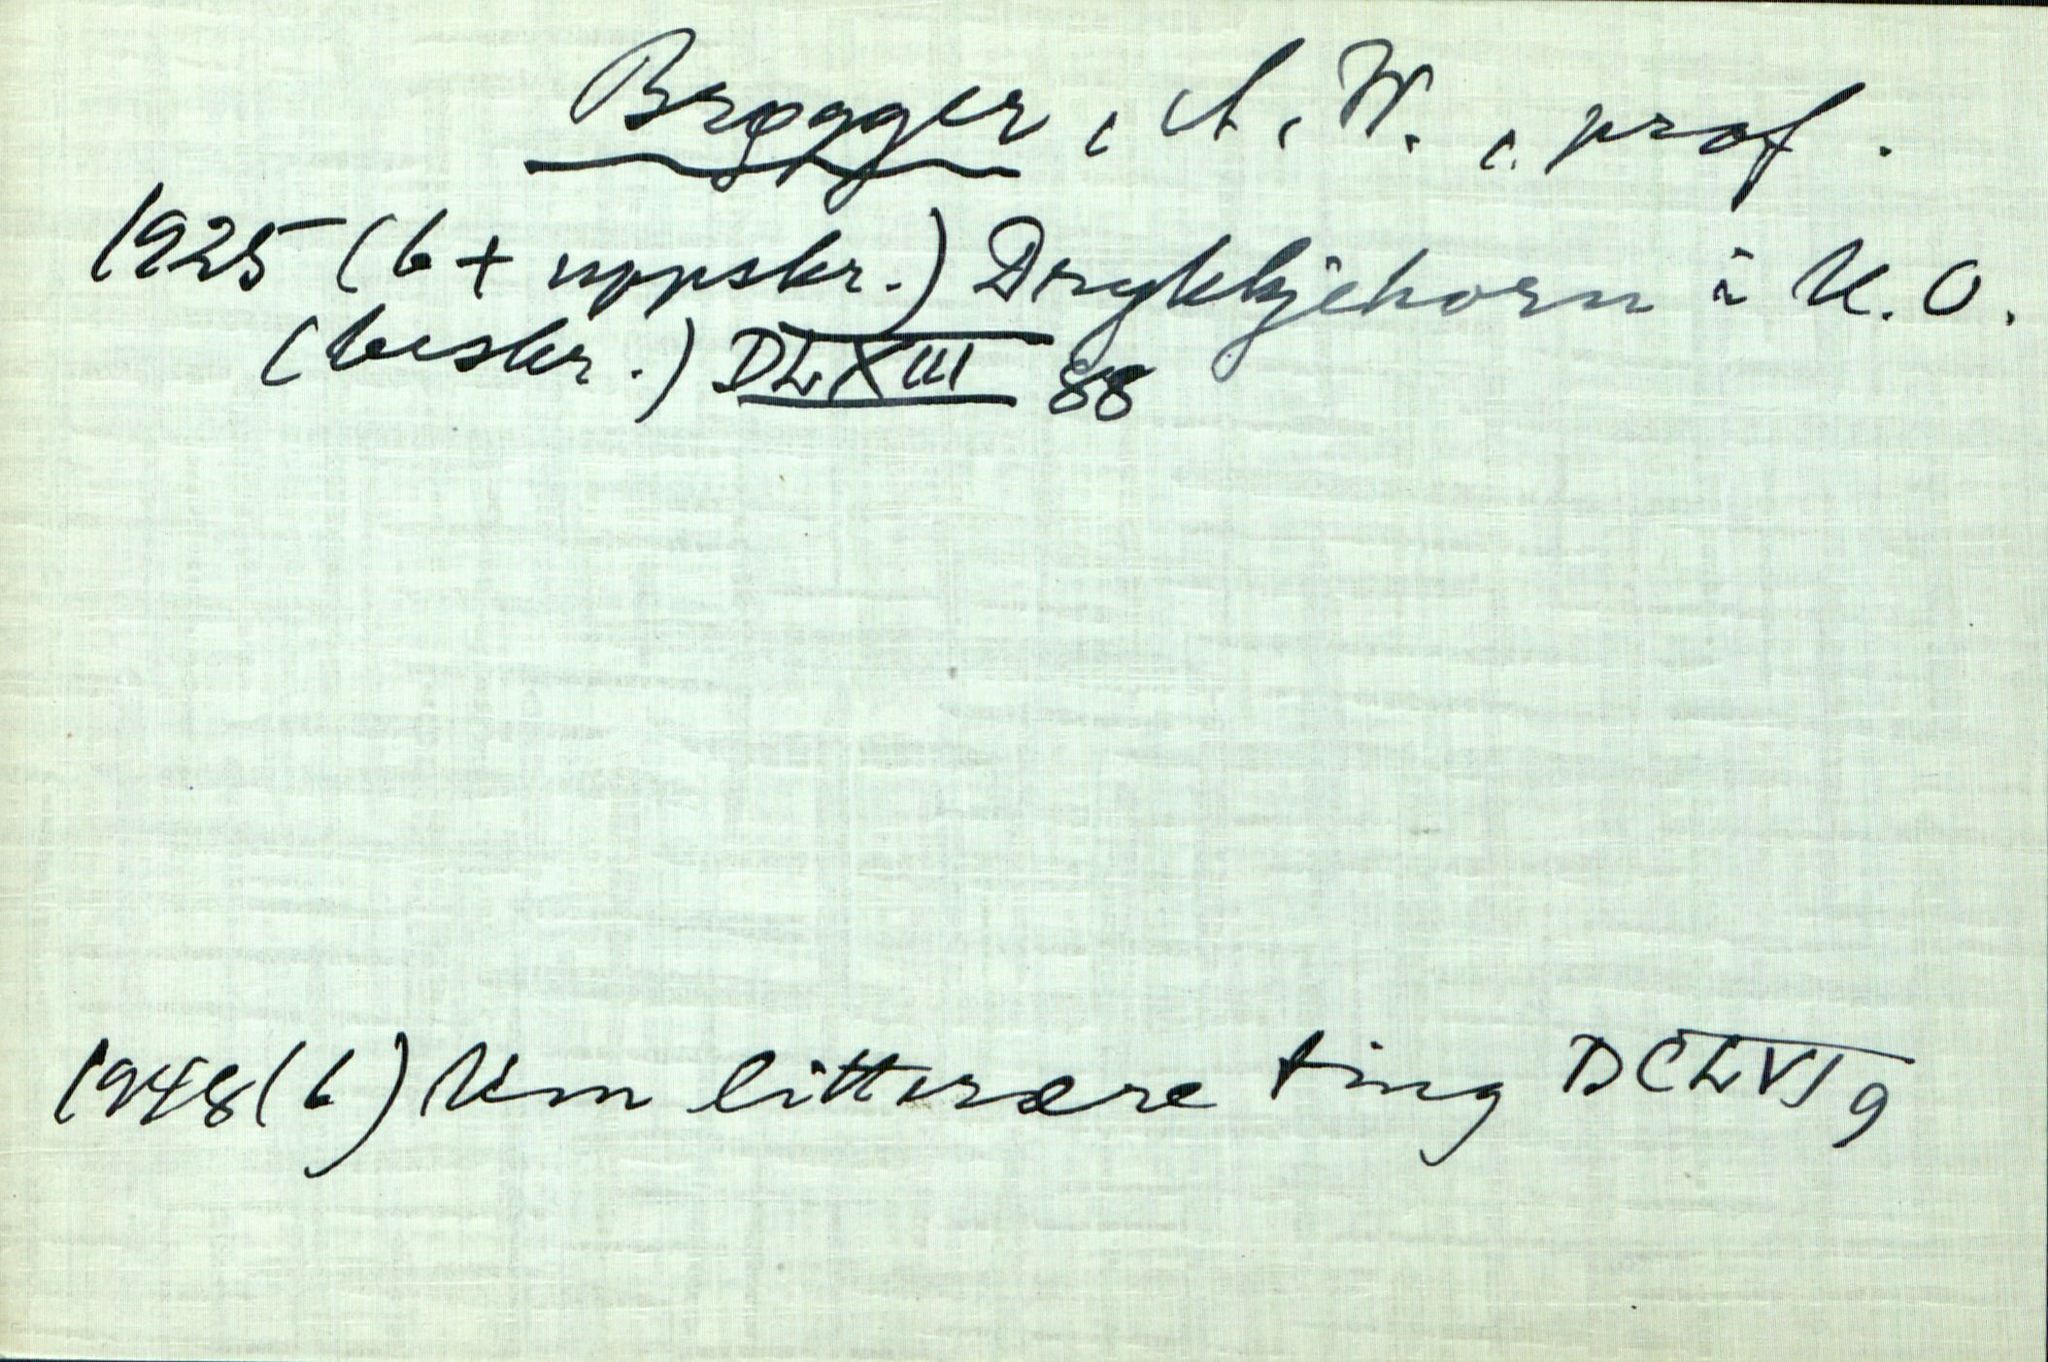 Brøgger, A. W., prof.
1925 (b + uppskr.) Drykkjehorn i U. O.
(beskr.) DLXIII 88
1948 (b) Um litterære ting DCLVI 9